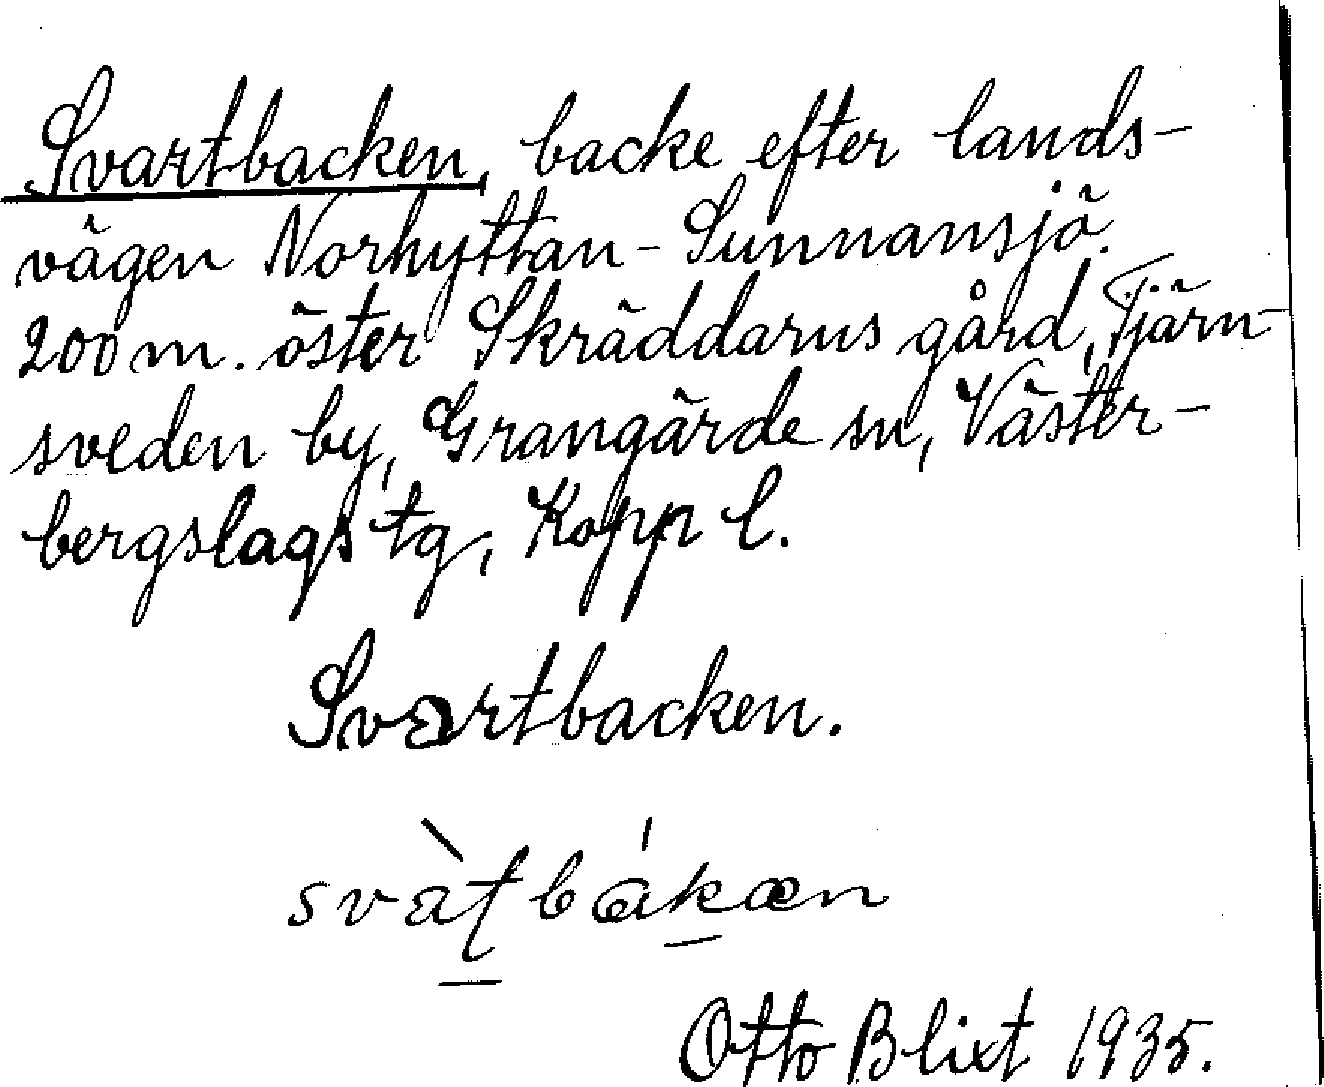 Svartbacken, backe efter lands-
vägen Norhyttan - Sunnansjö.
200 m. öster Skräddarus gård, Tjärn-
sveden by, Grangärde sn, Väster-
bergslags tg, Kopp l.
Svartbacken.
svàʈbákæn
Otto Blixt 1935.